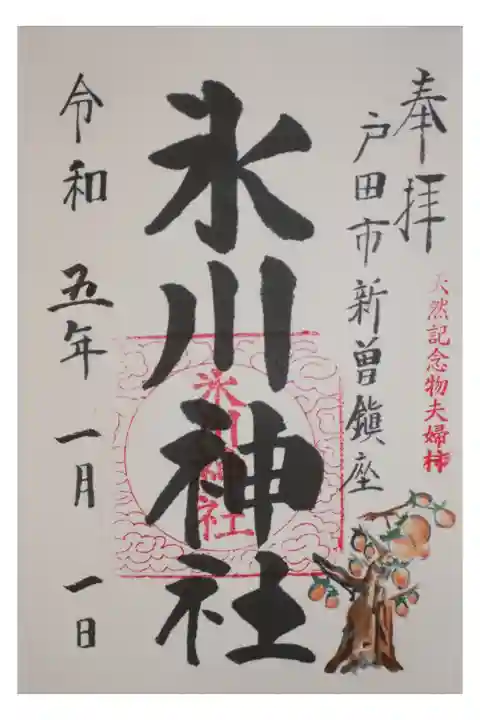 奉拝
天然記念物夫婦柿
戸田市新曽鎮座
氷川神社
氷川神社
令和五年一月一日